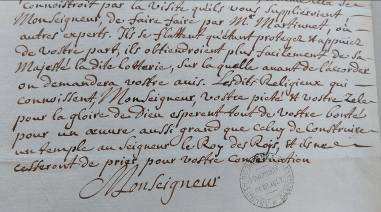 connoistroit par la visite qu'ils vous Supplieroient
Monseigneur, de faire faire par Mr. Martinnet, ou
autres experts. Ils se flattent qu'estant protegez et appuiez
de vostre part, ils obtiendroient plus facilement de Sa
Majesté la dite lotterie, sur laquelle avant de l'accorder
on demandera vostre avis. Lesdits Religieux qui
connoissent, Monseigneur, vostre pieté et vostre Zele
pour la gloire de Dieu esperent tout de vostre bonté
pour un œuvre aussi grand que celuy de Construire
un temple au Seigneur le Roy des Roys, et ils ne
cesseront de prier, pour vostre Conservation
Monseigneur